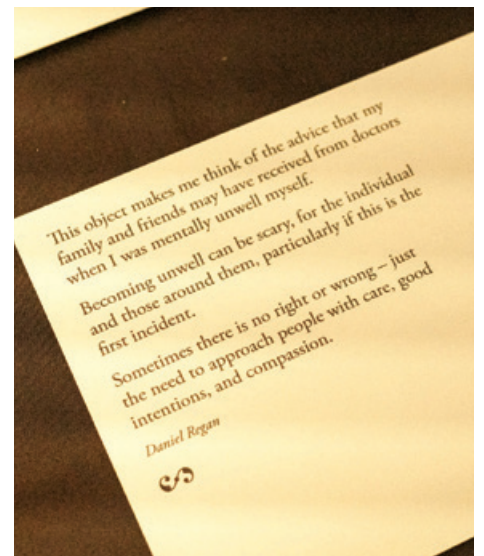 This object makes me think of the advice that my
family and friends may have received from doctors
when I was mentally unwell myself.
Becoming unwell can be scary, for the individual
and those around them, particularly if this is the
first incident.
Sometimes there is no right or wrong – just
the need to approach people with care, good
intentions, and compassion.
Daniel Regan